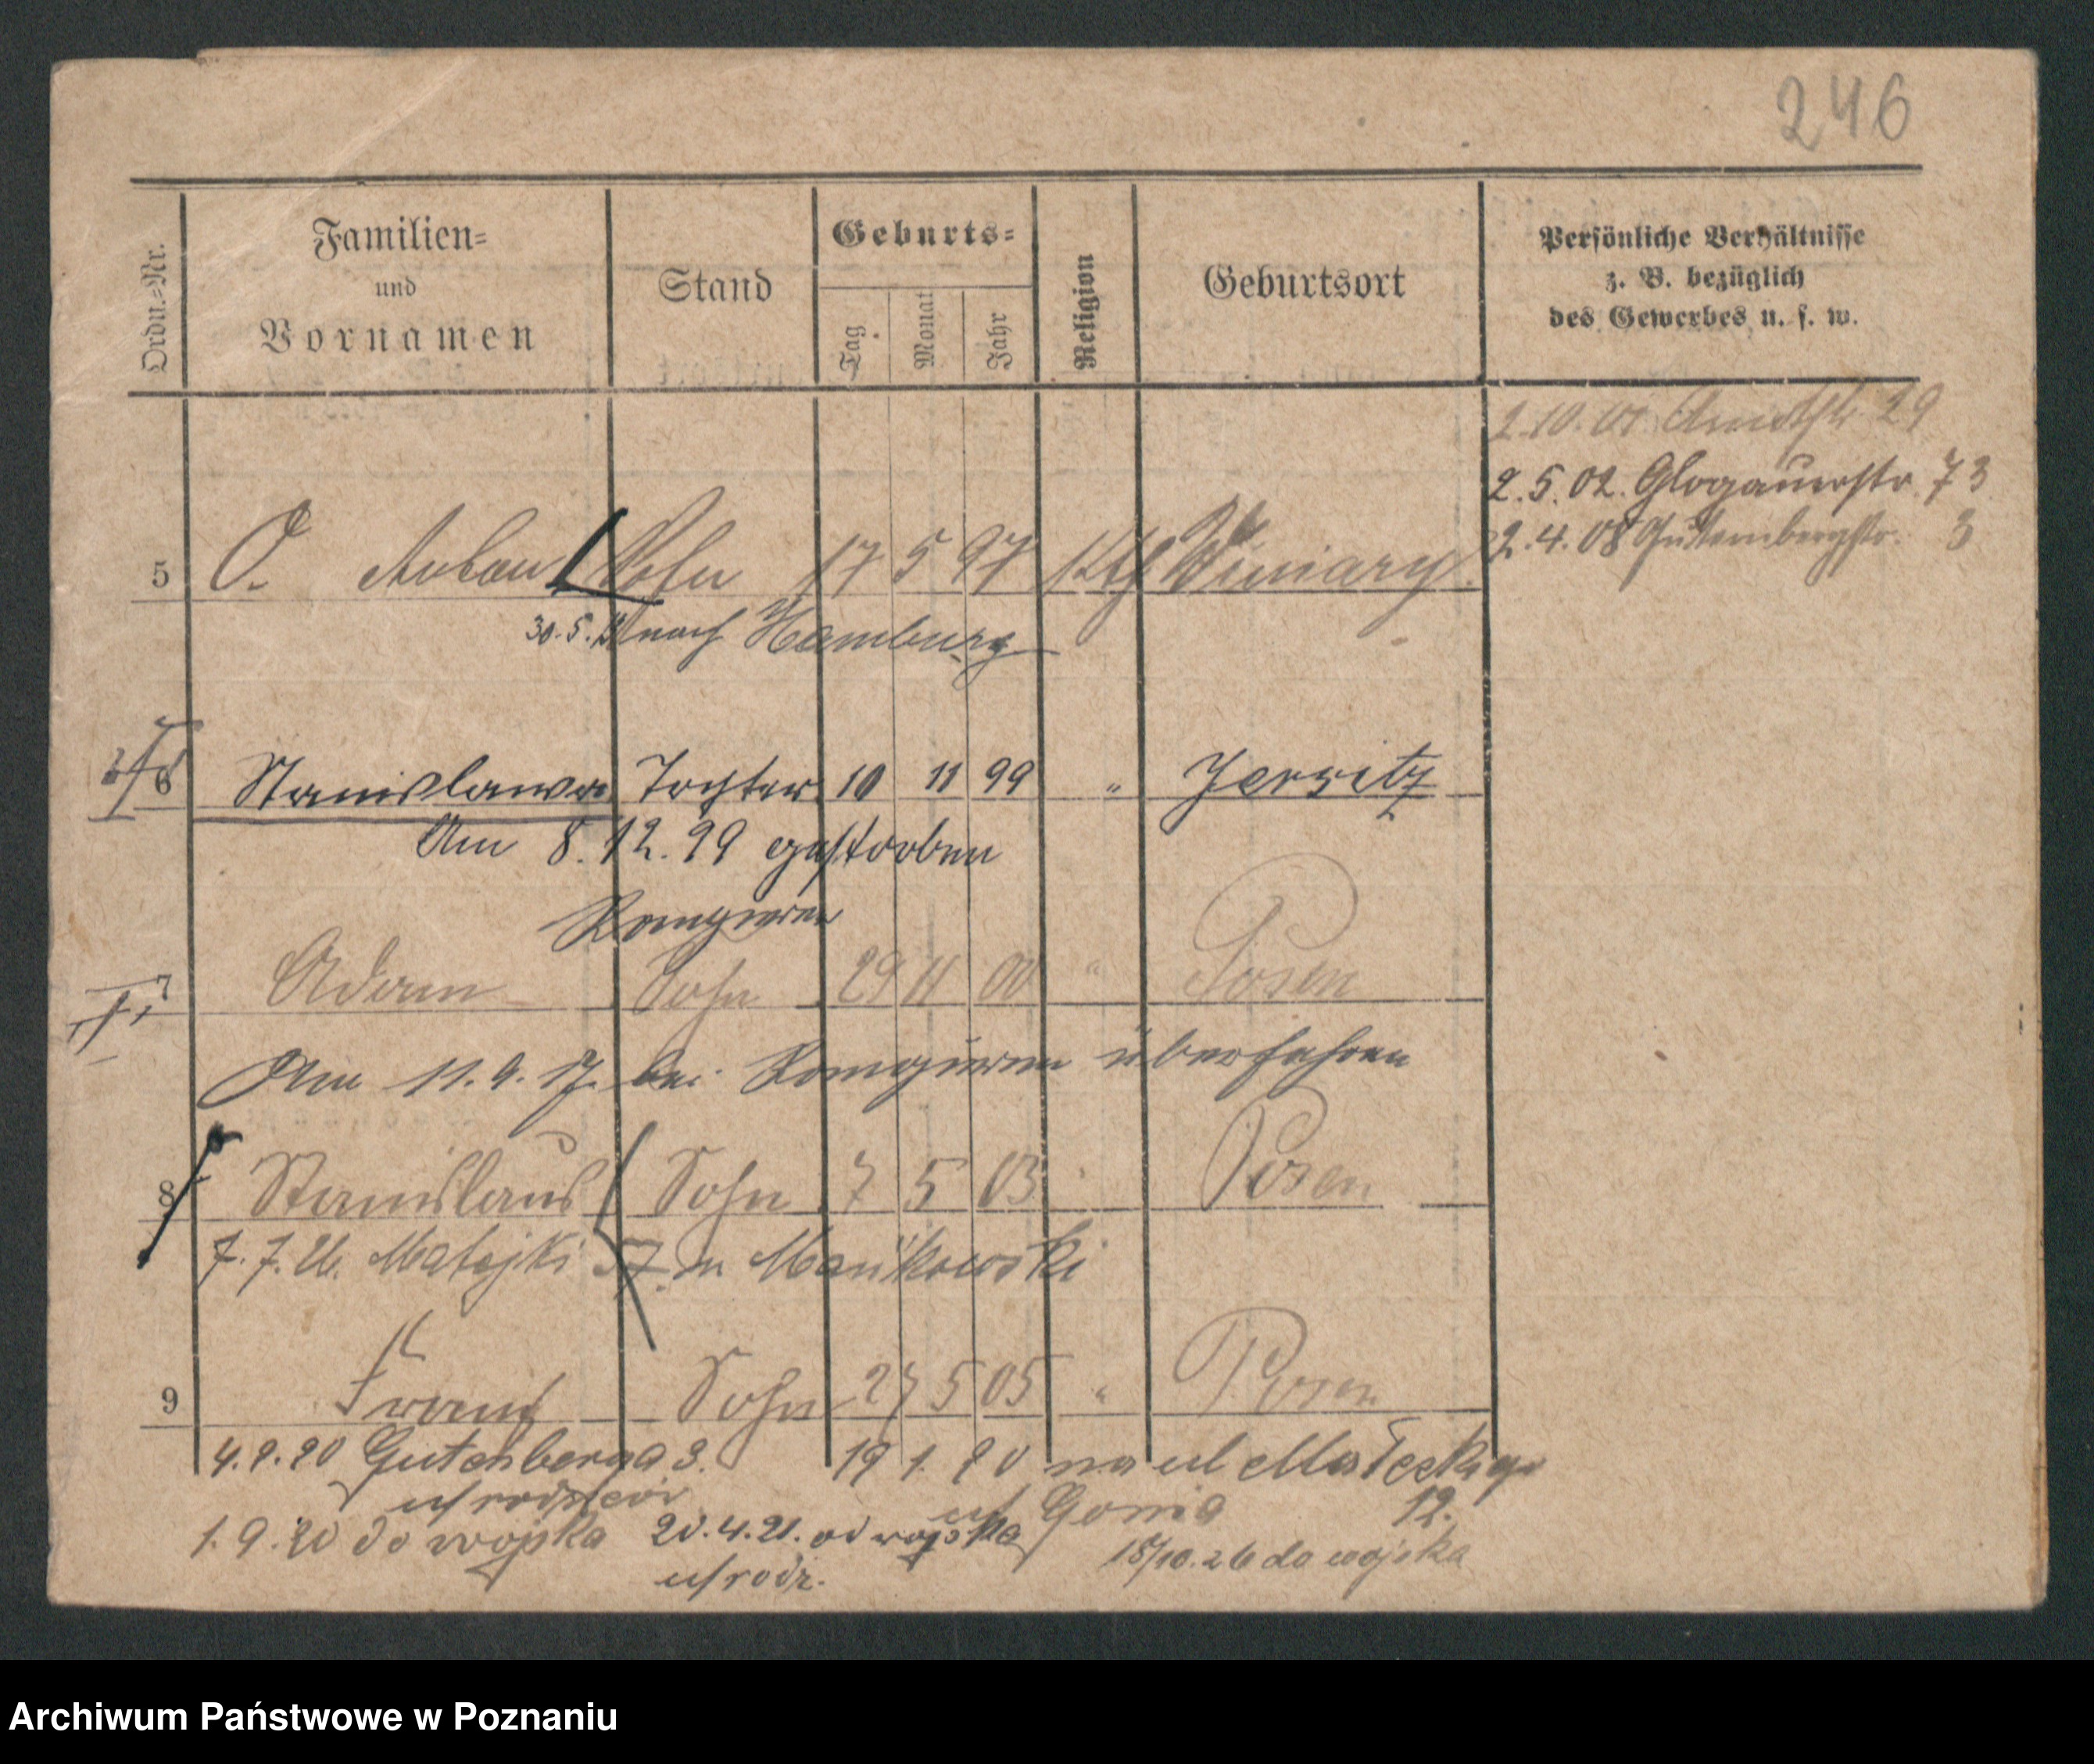 246
Ordn.-Nr.
Familien-
und
Vornamen
Stand
Geburts-
Tag
Monat
Jahr
Religion
Geburtsort
Persönliche Verhältnisse
z. B. bezüglich
des Gewerbes u. s. w.
29
2.5.02. Glogauerstr. 73
2.4.08 Gutenbergstr. 3
5 Sohn 17 5 97 Kth Winiary.
30.5. nach Hamburg
6 Stanislawa Tochter 10 11 99 " Jersitz
Am 8.12.99 gestorben
Rangieren
7 Adam Sohn 29 11 00 " Posen
Am 11.9.17. bei Rangieren überfahren
8 Stanislaus Sohn 7 5 03 Posen
7.7.26. Matejki 57. Mańkowski
9 Franz Sohn 27 5 05 " Posen
4.2.20 Gutenberga 3. 19 1. 20 na ul Małeckiego
u/ rodziców u/ 12.
1.9.20 do wojska 20.4.21. od wojska 18/10.26 do wojska
u/ rodz.
Archiwum Państwowe w Poznaniu